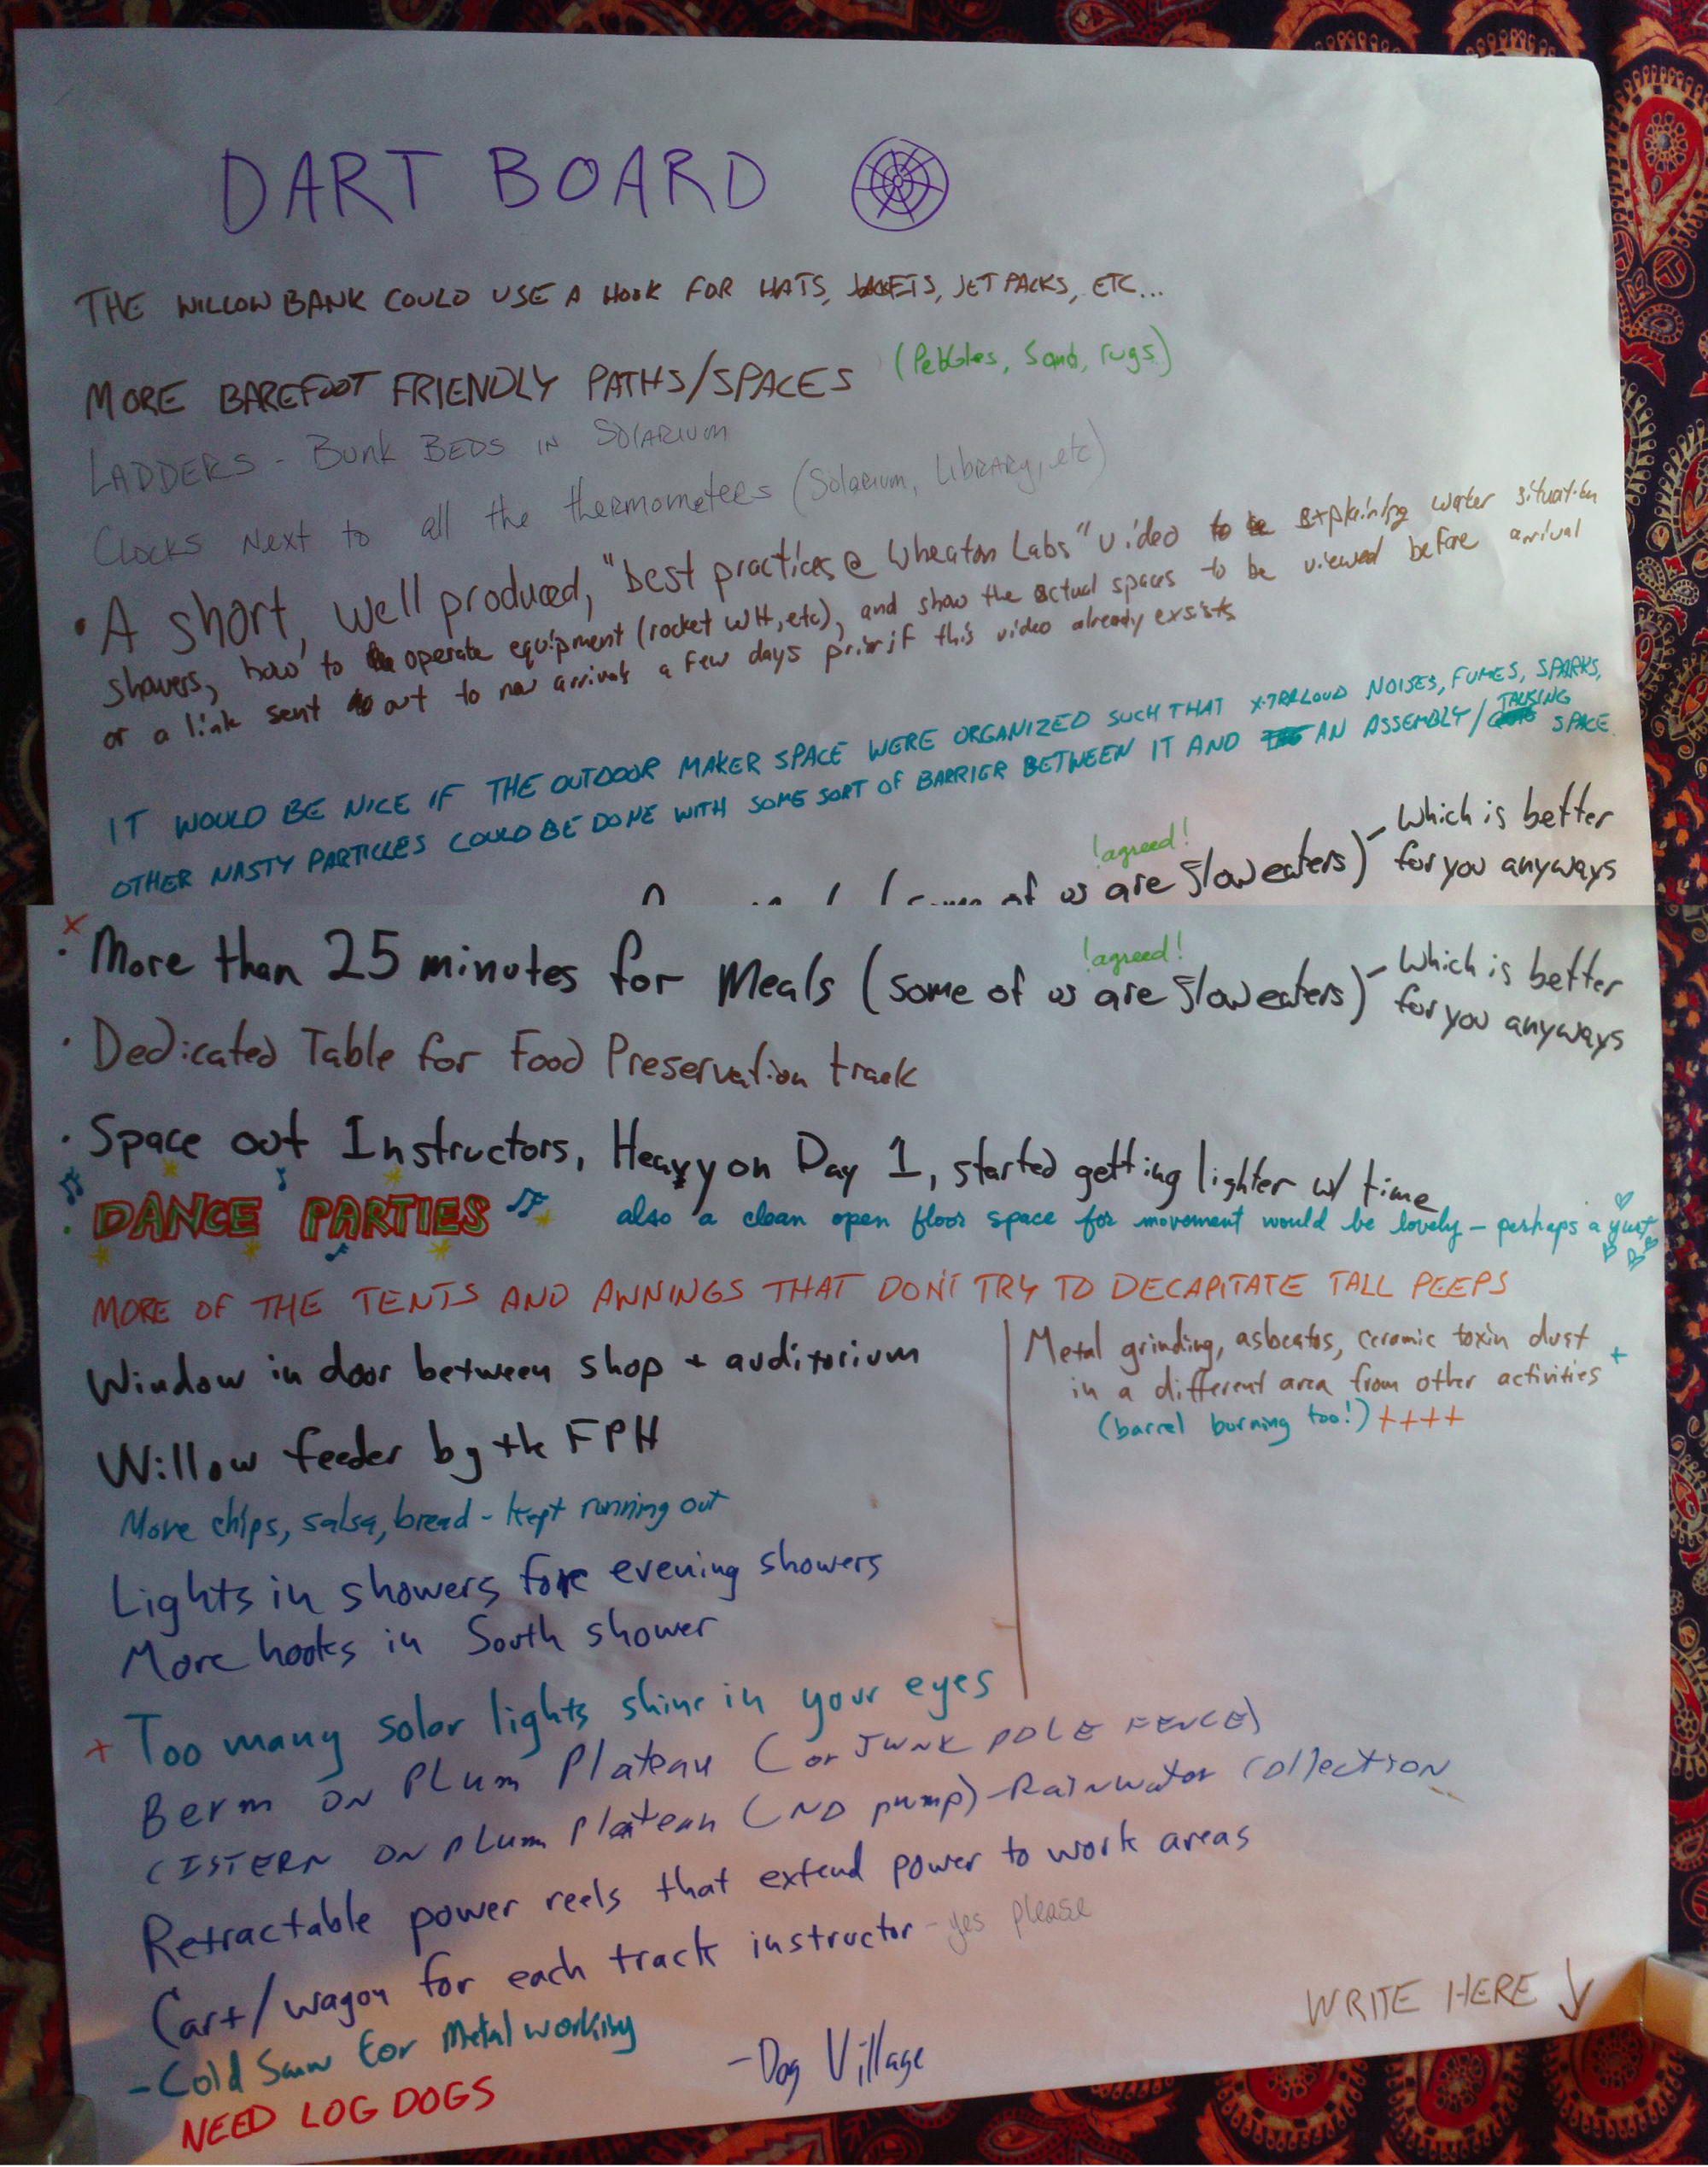 DART BOARD
THE WILLOW BANK COULD USE A HOOK FOR HATS, JACKETS, JET PACKS, ETC...
MORE BAREFOOT FRIENDLY PATHS/SPACES (Pebbles, Sand, rugs)
LADDERS - Bunk BEDS IN SOLARIUM
CLOCKS NEXT to all the thermometers (Solarium, Library, etc)
• A short, well produced, "best practices @ Wheaton Labs" video explaining water situation
showers, how to operate equipment (rocket WH, etc), and show the actual spaces to be viewed before arrival
or a link sent out to new arrivals a few days prior if this video already exsists
IT WOULD BE NICE IF THE OUTDOOR MAKER SPACE WERE ORGANIZED SUCH THAT X-TRA LOUD NOISES, FUMES, SPARKS,
OTHER NASTY PARTICLES COULD BE DONE WITH SOME SORT OF BARRIER BETWEEN IT AND AN ASSEMBLY/TALKING SPACE.
!agreed!
(some of us are slow eaters) - Which is better
for you anyways
x
!agreed!
· More than 25 minutes for Meals (some of us are slow eaters) - Which is better
for you anyways
· Dedicated Table for Food Preservation track
· Space out Instructors, Heavy on Day 1, started getting lighter w/ time
· DANCE PARTIES also a clean open floor space for movement would be lovely - perhaps a yurt
MORE OF THE TENTS AND AWNINGS THAT DON'T TRY TO DECAPITATE TALL PEEPS
Window in door between shop + auditorium
Willow feeder by the FPH
More chips, salsa, bread - kept running out
Lights in showers for evening showers
More hooks in South shower
+ Too many solar lights shine in your eyes
Metal grinding, asbeatos, ceramic toxin dust
in a different area from other activities +
(barrel burning too!) ++++
Berm ON PLum Plateau (or JUNK POLE FENCE)
CISTERN ON PLum Plateau (NO pump) - Rainwater Collection
Retractable power reels that extend power to work areas
Cart/wagon for each track instructor - yes please
- Cold Saw for Metal working
- Dog Village
WRITE HERE ↓
NEED LOG DOGS